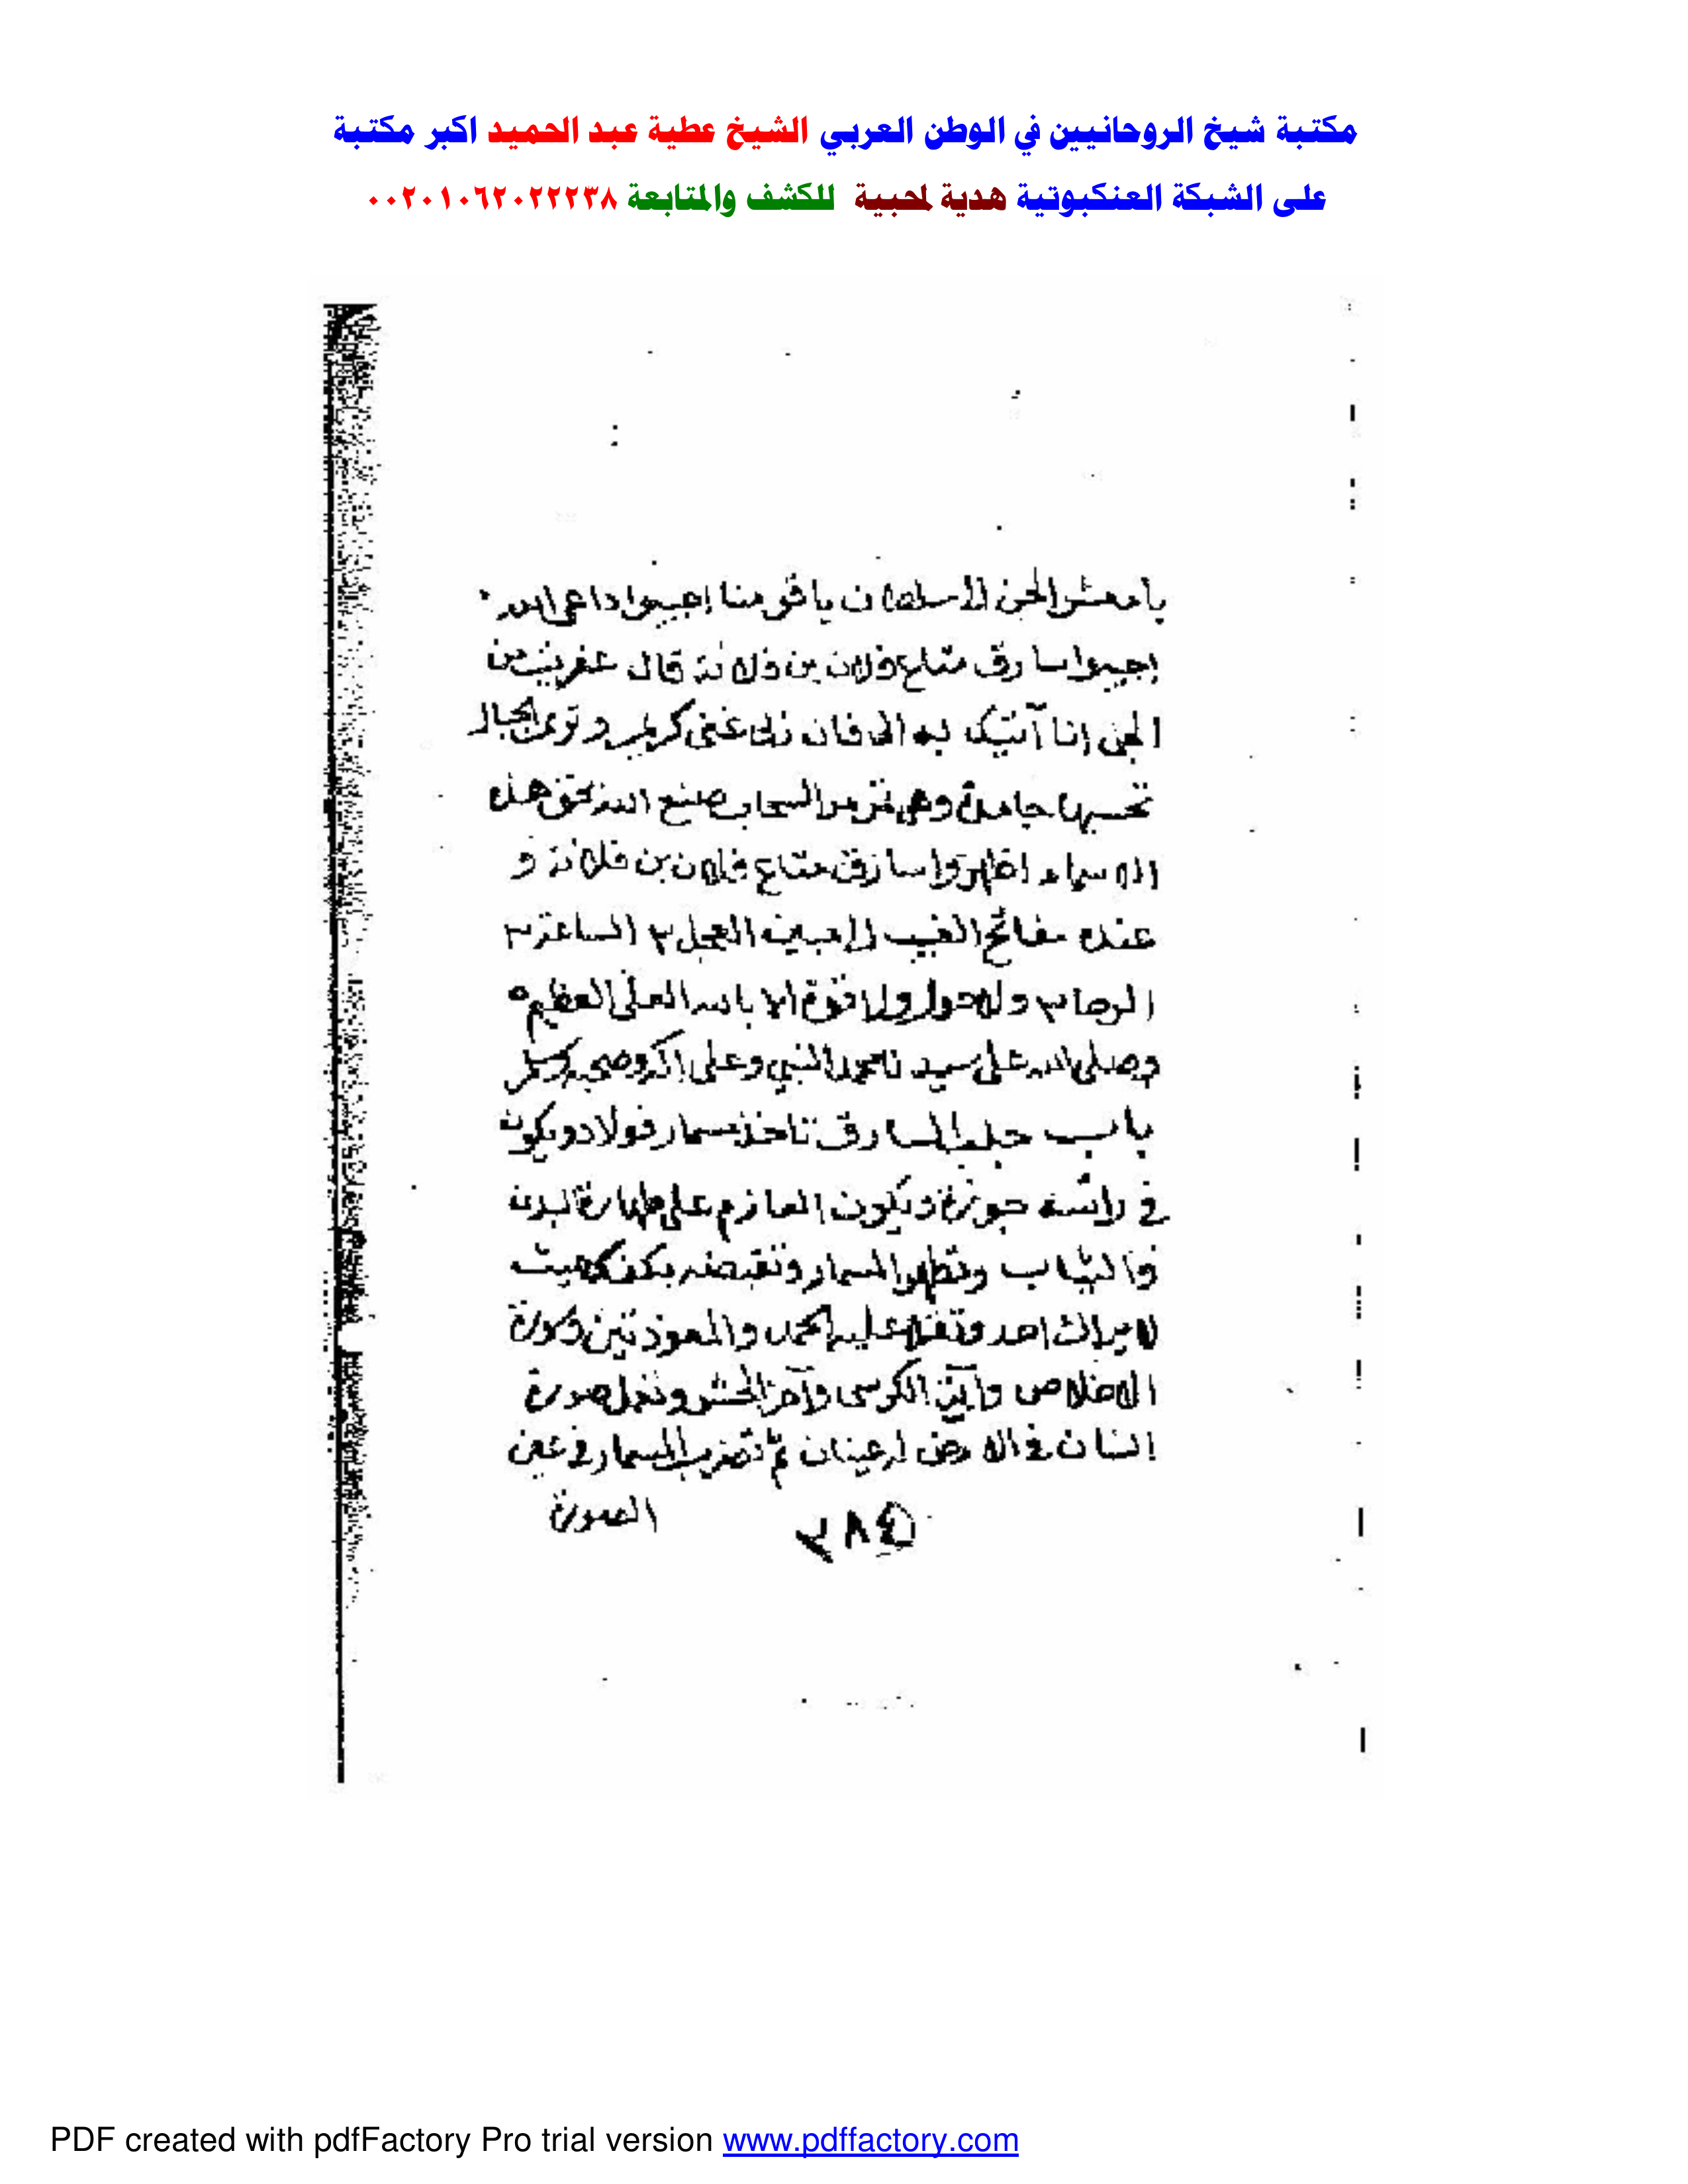 مكتبة شيخ الروحانيين في الوطن العربي الشيخ عطية عبد الحميد اكبر مكتبة
على الشبكة العنكبوتية هدية لمحبية للكشف والمتابعة ٠٠٢٠١٠٦٢٠٢٢٢٣٨
يا معشر الجن يا قومنا اجيبوا داعى الله
اجيبوا سارق متاع فلان بن فلانة قال عفريت من
الجن انا آتيك به الى فان ربى غنى كريم وترى الجبال
تحسبها جامدة وهى تمر مر السحاب صنع الله بحق هذه
الاسماء اظهروا سارق متاع فلان بن فلانة و
عنده مفاتح الغيب العجل ٣ الساعة ٣
الوحا ٣ ولا حول ولا قوة الا بالله العلى العظيم
وصلى الله على سيدنا محمد النبي وعلى اله وصحبه وسلم
باب جلب السارق تاخذ مسمار فولاد ويكون
في راسه جوزة ويكون العازم على طهارة البدن
والثياب وتطهر المسمار وتقبضه بكفك بحيث
لا يراك احد وتقرا عليه الحمد والمعوذتين وسورة
الاخلاص وآية الكرسى وآخر الحشر وتعمل صورة
انسان في الارض له عينان ثم تضرب المسمار في عين
٣٨٤ الصورة
PDF created with pdfFactory Pro trial version www.pdffactory.com